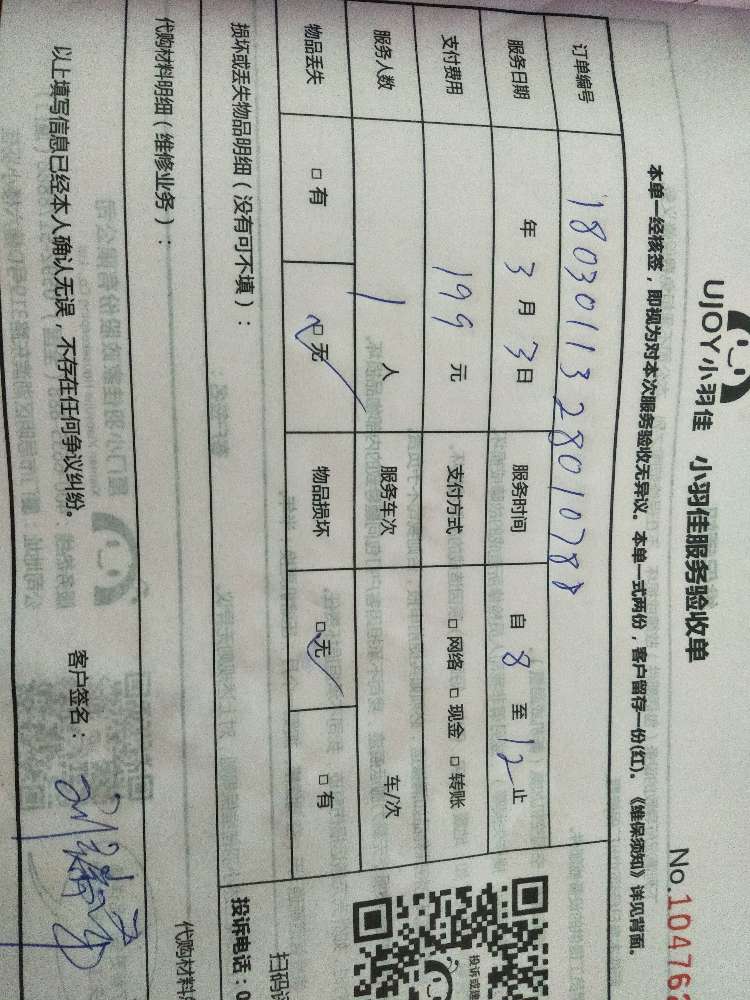 UJOY小羽佳 小羽佳服务验收单
No.10476
本单一经核签，即视为对本次服务验收无异议。本单一式两份，客户留存一份(红)。《维保须知》详见背面。
订单编号 1803011328010788
服务日期 年 3 月 3 日 服务时间 自 8 至 12 止
支付费用 199 元 支付方式 □ 网络 □ 现金 □ 转账
服务人数 1 人 服务车次 车/次
物品丢失 □ 有 □ 无 物品损坏 □ 无 □ 有
损坏或丢失物品明细（没有可不填）：
代购材料明细（维修业务）：
以上填写信息已经本人确认无误，不存在任何争议纠纷。 客户签名：
投诉或建
扫码
投诉电话：0
代购材料